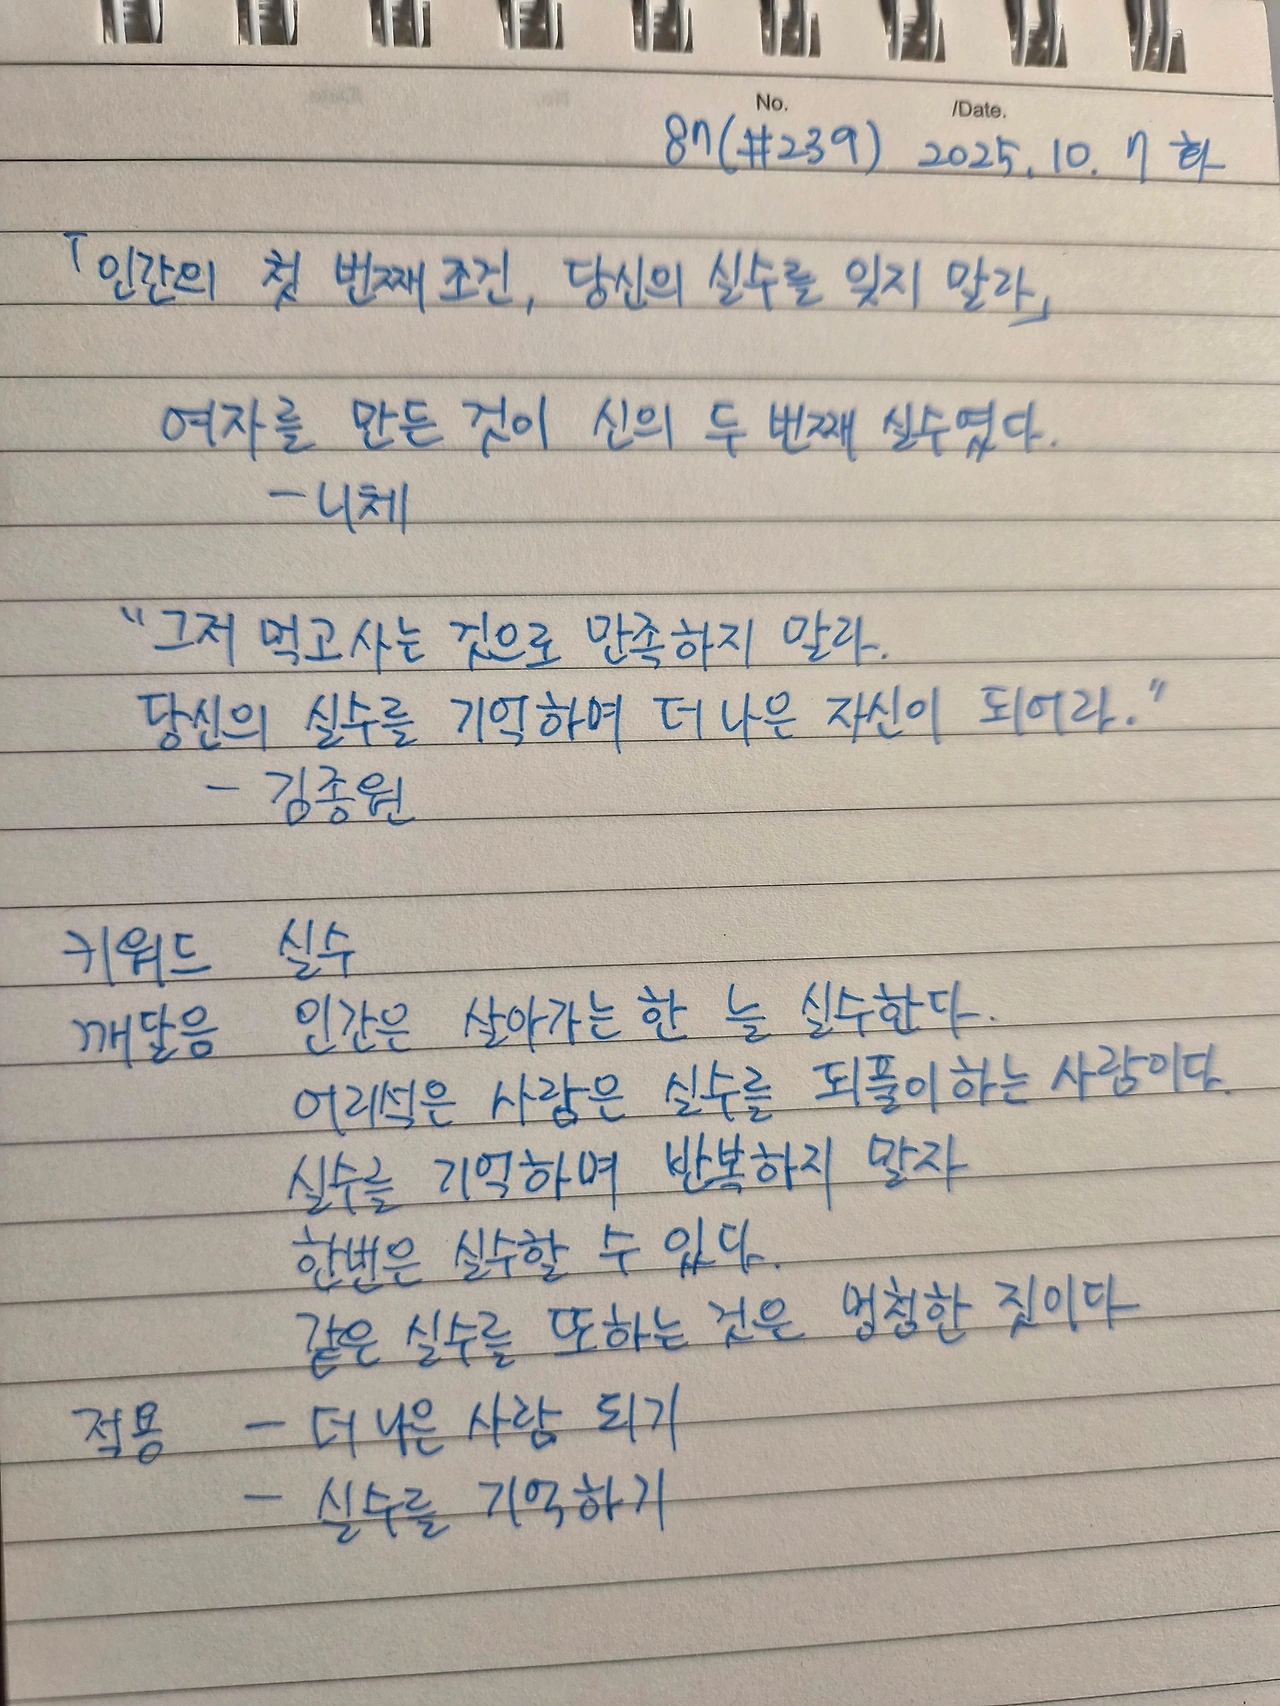 No. /Date.
87(#239) 2025. 10. 7 화
「인간의 첫 번째 조건, 당신의 실수를 잊지 말라」
여자를 만든 것이 신의 두 번째 실수였다.
- 니체
"그저 먹고사는 것으로 만족하지 말라.
당신의 실수를 기억하며 더 나은 자신이 되어라."
- 김종원
키워드 실수
깨달음 인간은 살아가는 한 늘 실수한다.
어리석은 사람은 실수를 되풀이하는 사람이다.
실수를 기억하며 반복하지 말자
한번은 실수할 수 있다.
같은 실수를 또하는 것은 멍청한 짓이다
적용 - 더 나은 사람 되기
- 실수를 기억하기